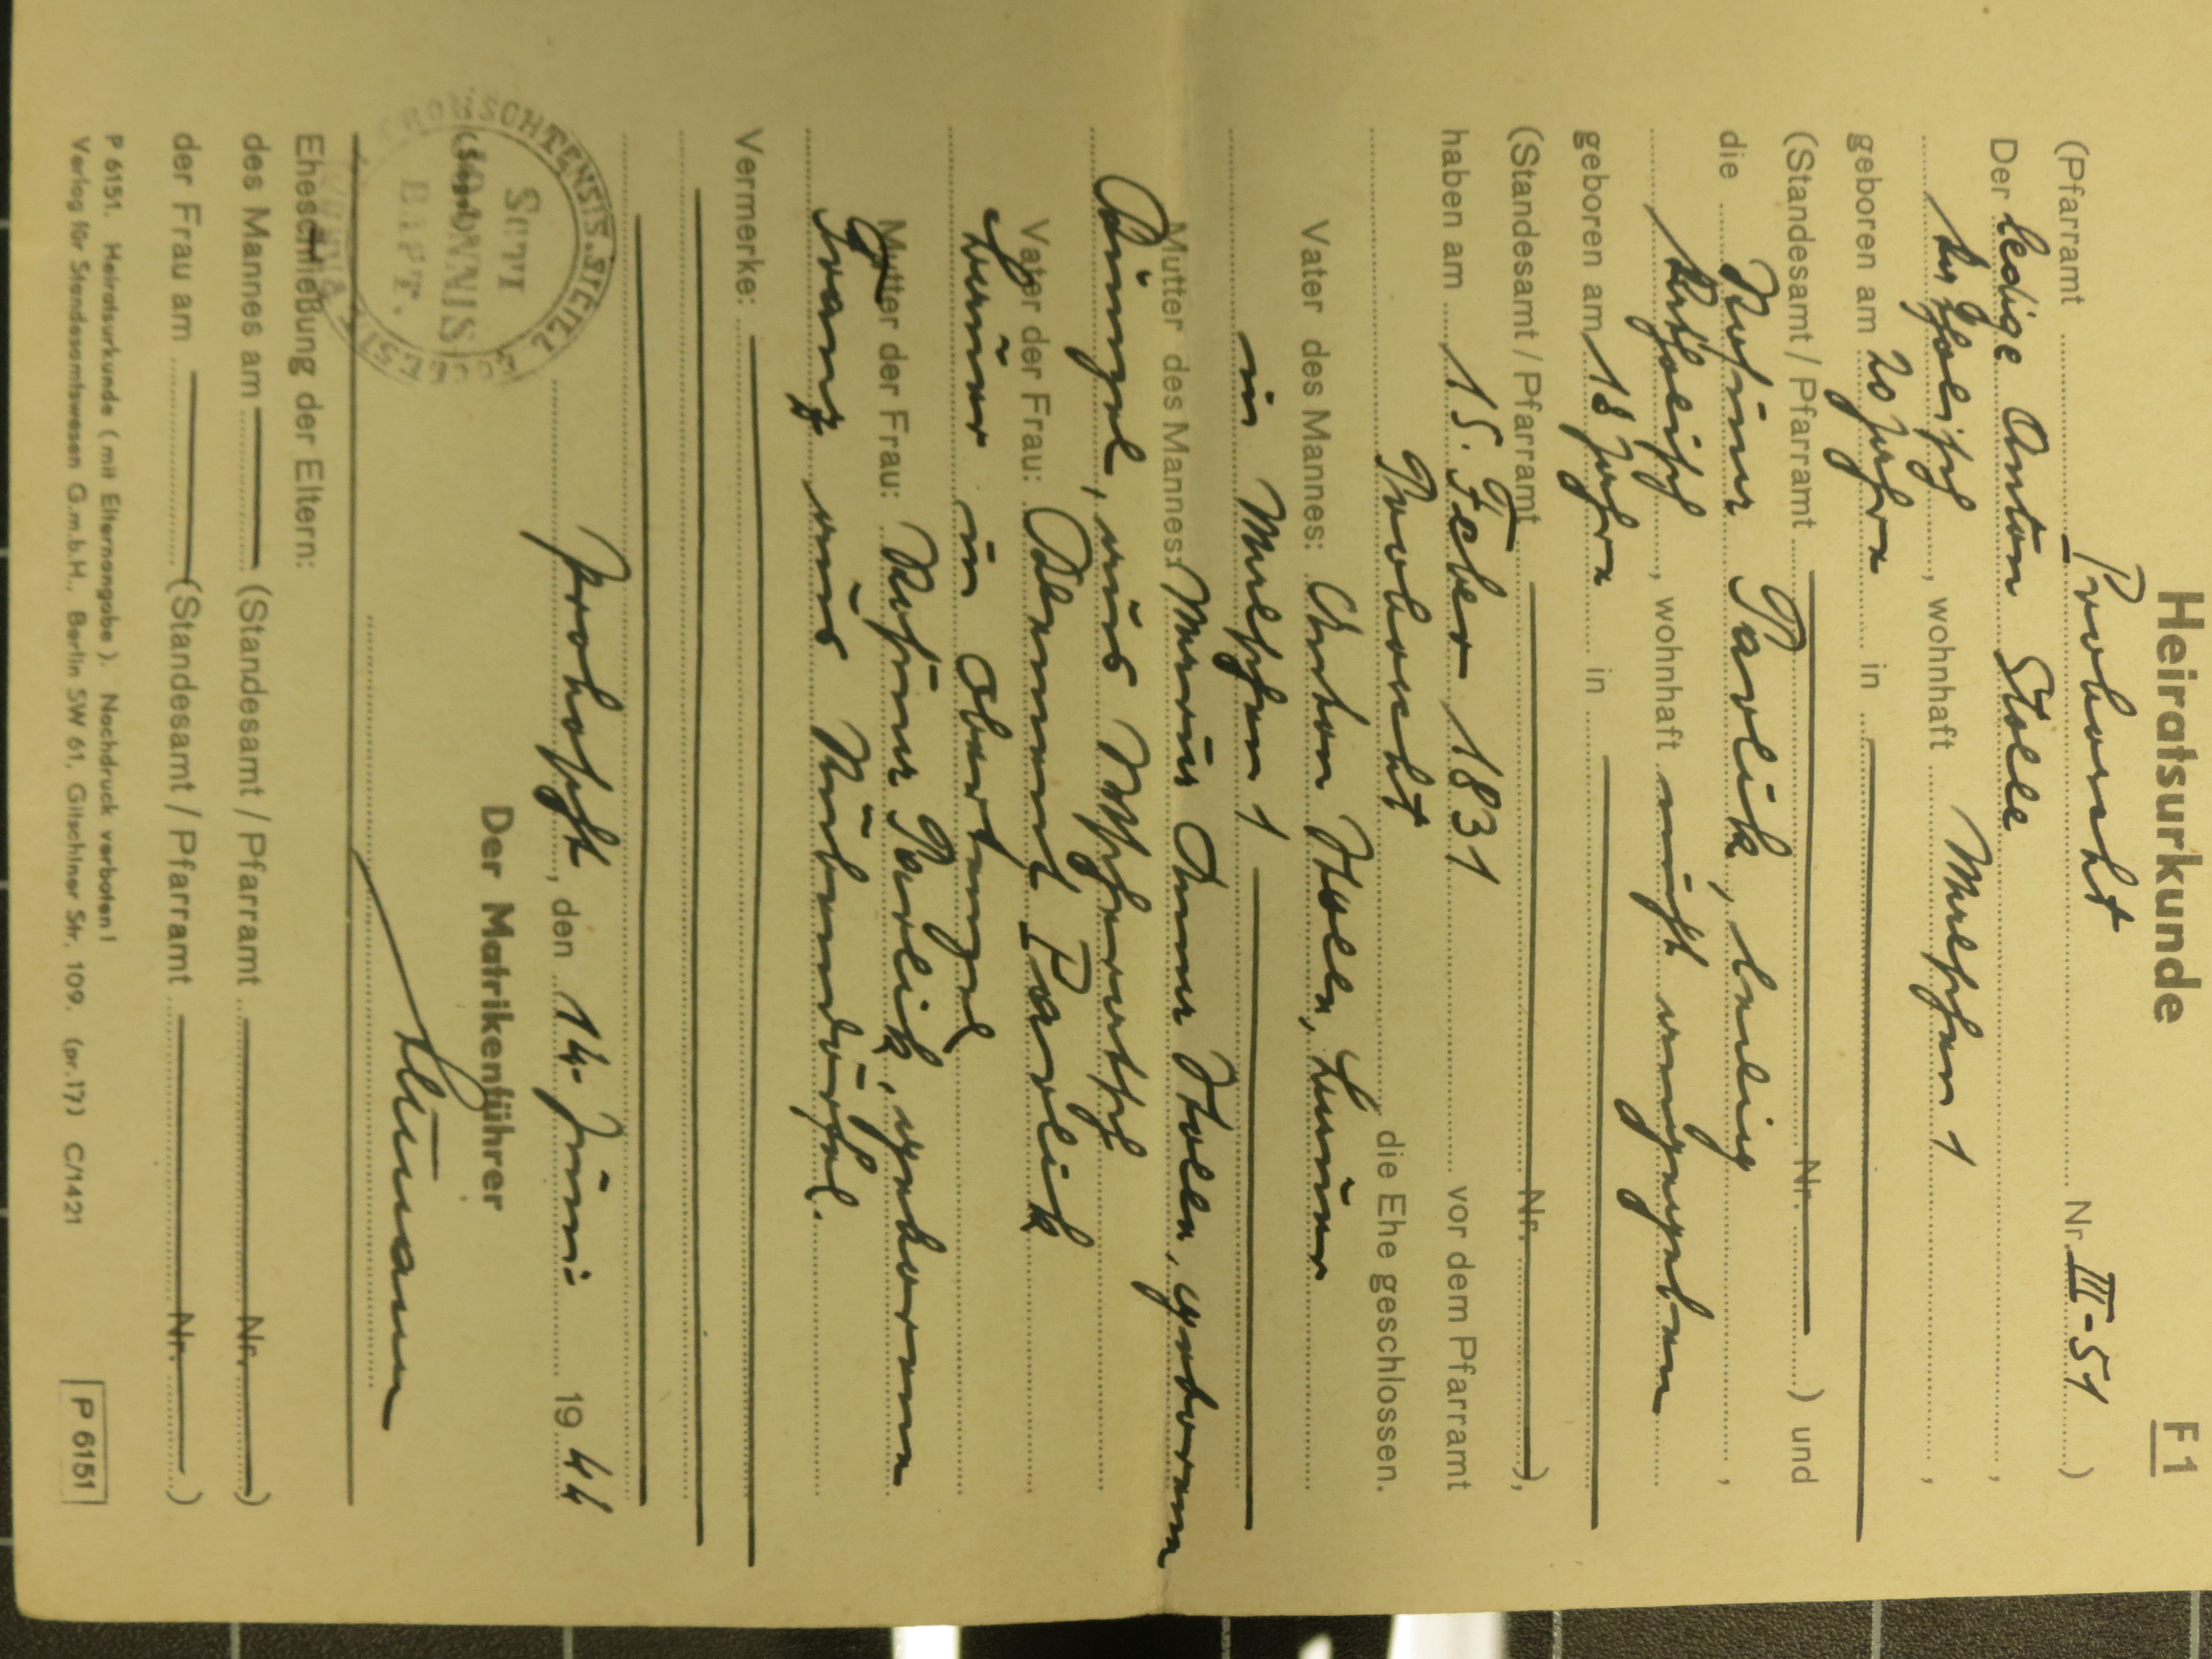 Heiratsurkunde F 1
(Pfarramt Proboscht Nr. III-51)
Der ledige Anton Stolle,
katholisch, wohnhaft Malschen 1,
geboren am 20 Jahre in
(Standesamt / Pfarramt Nr. ) und
die Rosina Pavlik, ledig,
katholisch, wohnhaft nicht angegeben
geboren am 18 Jahre in
(Standesamt / Pfarramt Nr. ),
haben am 15. Feber 1831 vor dem Pfarramt
Proboscht, die Ehe geschlossen.
Vater des Mannes: Anton Stolle, Bauer
in Malschen 1
Mutter des Mannes: Maria Anna Stolle, geborene
Künzel, aus
Vater der Frau: Klement Pavlik
Bauer in Obertenzel
Mutter der Frau: Rosina Pavlik, geborene
Franz aus Rübendörfel.
Vermerke:
Proboscht, den 14. Juni 1944
Der Matrikenführer
SCTI
JOANNIS
BAPT.
(Siegel)
Eheschließung der Eltern:
des Mannes am (Standesamt / Pfarramt Nr. )
der Frau am (Standesamt / Pfarramt Nr. )
P 6151. Heiratsurkunde (mit Elternangabe). Nachdruck verboten!
Verlag für Standesamtswesen G.m.b.H., Berlin SW 61, Gitschiner Str. 109. (pr.17) C/1421 P 6151